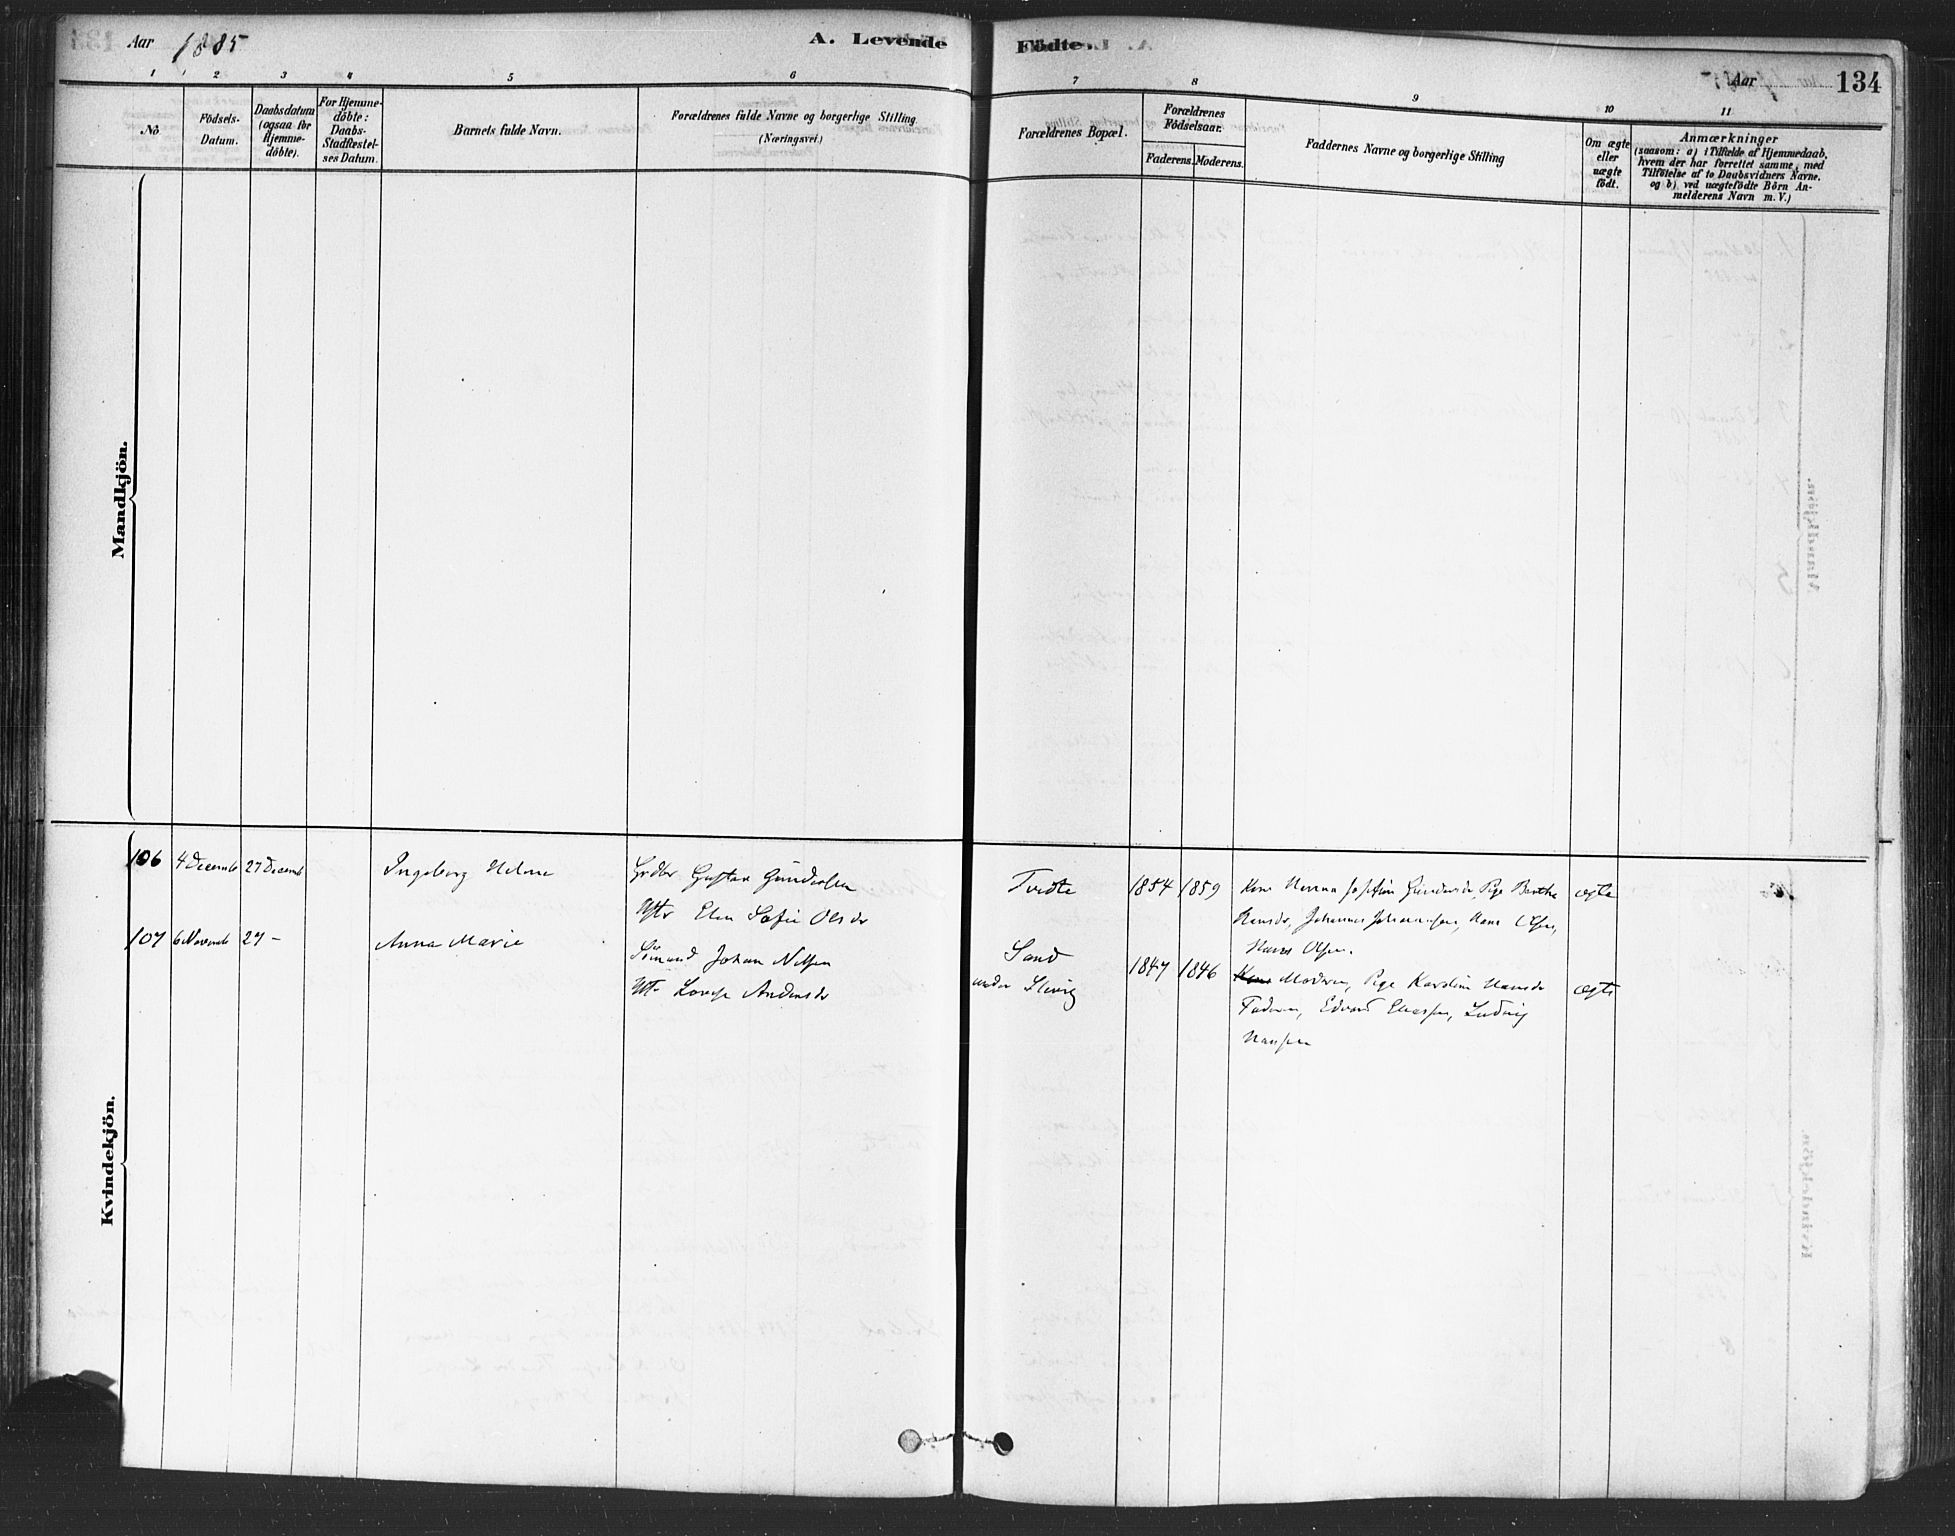 Aar 1885
A. Levende
Födte.
Aar
134
1 2 3 4 5 6 7 8 9 10 11
No
Födsels-
Datum.
Daabsdatum
(ogsaa for
Hjemme-
döbte).
For Hjemme-
döbte:
Daabs-
Stadfæstel-
ses Datum.
Barnets fulde Navn.
Forældrenes fulde Navne og borgerlige Stilling
(Næringsvei.)
Forældrenes Bopæl.
Forældrenes
Födselsaar.
Faderens. Moderens.
Faddernes Navne og borgerlige Stilling
Om ægte
eller
uægte
födt.
Anmærkninger
(saasom: a) i Tilfælde af Hjemmedaab,
hvem der har forrettet samme, med
Tilföielse af to Daabsvidners Navne.
og b) ved uægtefödte Börn An-
melderens Navn m. V.)
Mandkjön.
Kvindekjön.
106 4 Decemb 27 Decemb Ingeborg Helene
Gustav Gundersen
Hstr Elen Sofie Olsdr
Tvedte 1854 1859
Kone Josefine Gundersdr, Pige Berthe
Hansdr, Johannes Johannessen, Hans Olsen,
Hans Olsen.
ægte
107 6 Novemb 27 – Anna Marie
Sömand Johan Nilsen
Hstr Lovise Andersdr
Sand
under
1847 1846
Moderen, Pige Karoline Hansdr
Faderen, Edvard Eliassen, Ludvig
Hansen
ægte